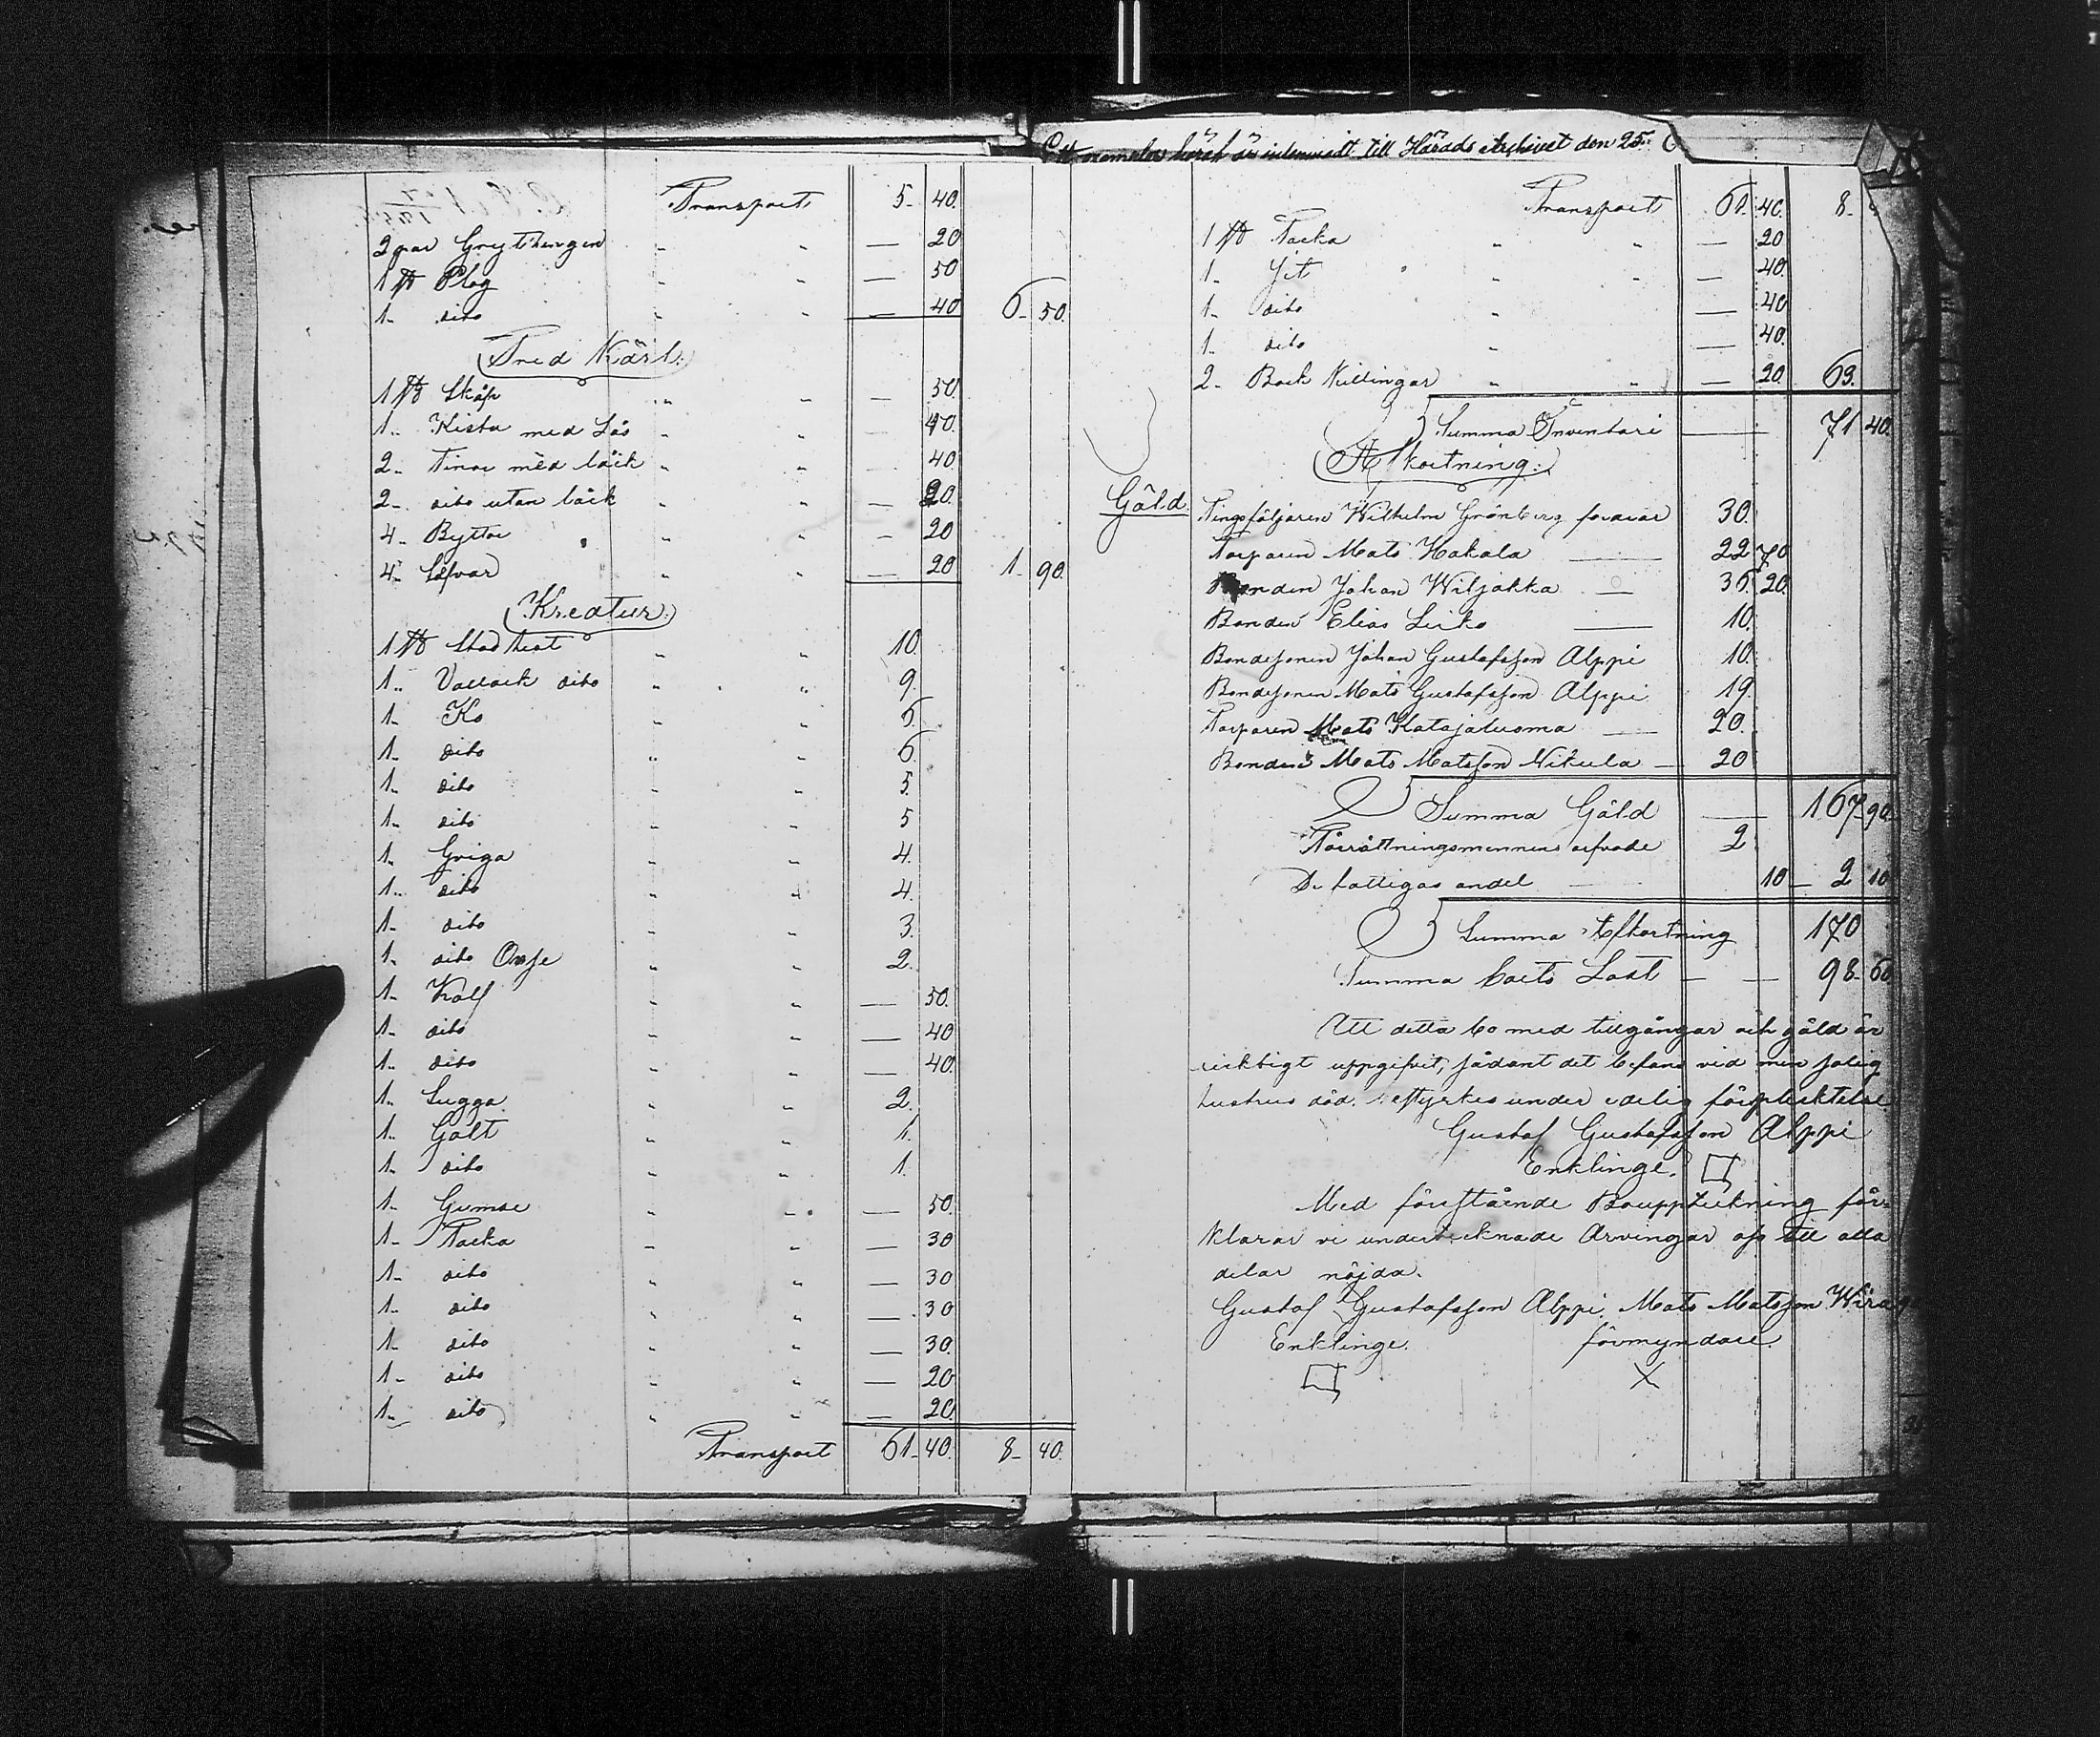 Transport 5. 40.
2 par Grythengen " " — 20
1 st Plog " " — 50
1 dito " " — 40 6. 50.
Träd Kärl:
1 st Skåp " " — 50.
1 Kista med Lås " " — 40.
2 Tinor med läck " " — 40
2 dito utan läck " " — 20.
4 Byttor " " — 20
4 Säfvar " " — 20 1. 90.
Kreatur:
1 st Stod hest " " 10.
1 Vallack dito " " 9.
1 Ko " " 6.
1 dito " " 6.
1 dito " " 5.
1 dito " " 5
1 Qviga " " 4.
1 dito " " 4.
1 dito " " 3.
1 dito Oxse " " 2.
1 Kalf " — 50.
1 dito " — 40
1 dito " — 40.
1 Sugga " " 2.
1 Galt " " 1.
1 dito " " 1.
1 Gumse " " — 50.
1 Tacka " " — 30
1 dito " " — 30
1 dito " " — 30
1 dito " " — 30.
1 dito " " — 20
1 dito " " — 20.
Transport 61. 40. 8. 40.
Ett exemplar häraf är inlemnadt till Härads Arkivet den 25.
Transport 61. 40. 8.
1 st Tacka " " — 20
1 Jit " " — 40.
1 dito " — 40
1 dito " — 40.
2 Bock Killingar " " — 20. 63.
Summa Inventari — 71 40.
Afkortning:
Gäld. Tingsföljaren Wilhelm Grönberg fordrar 30.
Torparen Mats Hakala — 22 70
Bonden Johan Wiljakka — 36. 20.
Bonden Elias Leiko — 10.
Bondesonen Johan Gustafsson Alppi 10.
Bondesonen Mats Gustafsson Alppi 19.
Torparen Mats Katajaluoma — 20.
Bonden Mats Matsson Nikula — 20
Summa Gäld — 167. 90.
Förrättningsmennens arfvode 2
De fattigas andel — 10 — 2 10
Summa Afkortning 170
Summa boets Last — — 98. 60
Att detta bo med tillgångar och gäld är
ricktigt uppgifvit, sådant det befans vid min salig
hustrus död. bestyrkes under edelig förplicktelse
Gustaf Gustafsson Alppi
Enklinge.
Med föreståénde Bouppteckning för-
klarar vi undertecknade Arvingar oss till alla
delar nöjda.
Gustaf Gustafsson Alppi. Mats Matsson
Enklinge. förmyndare.
X